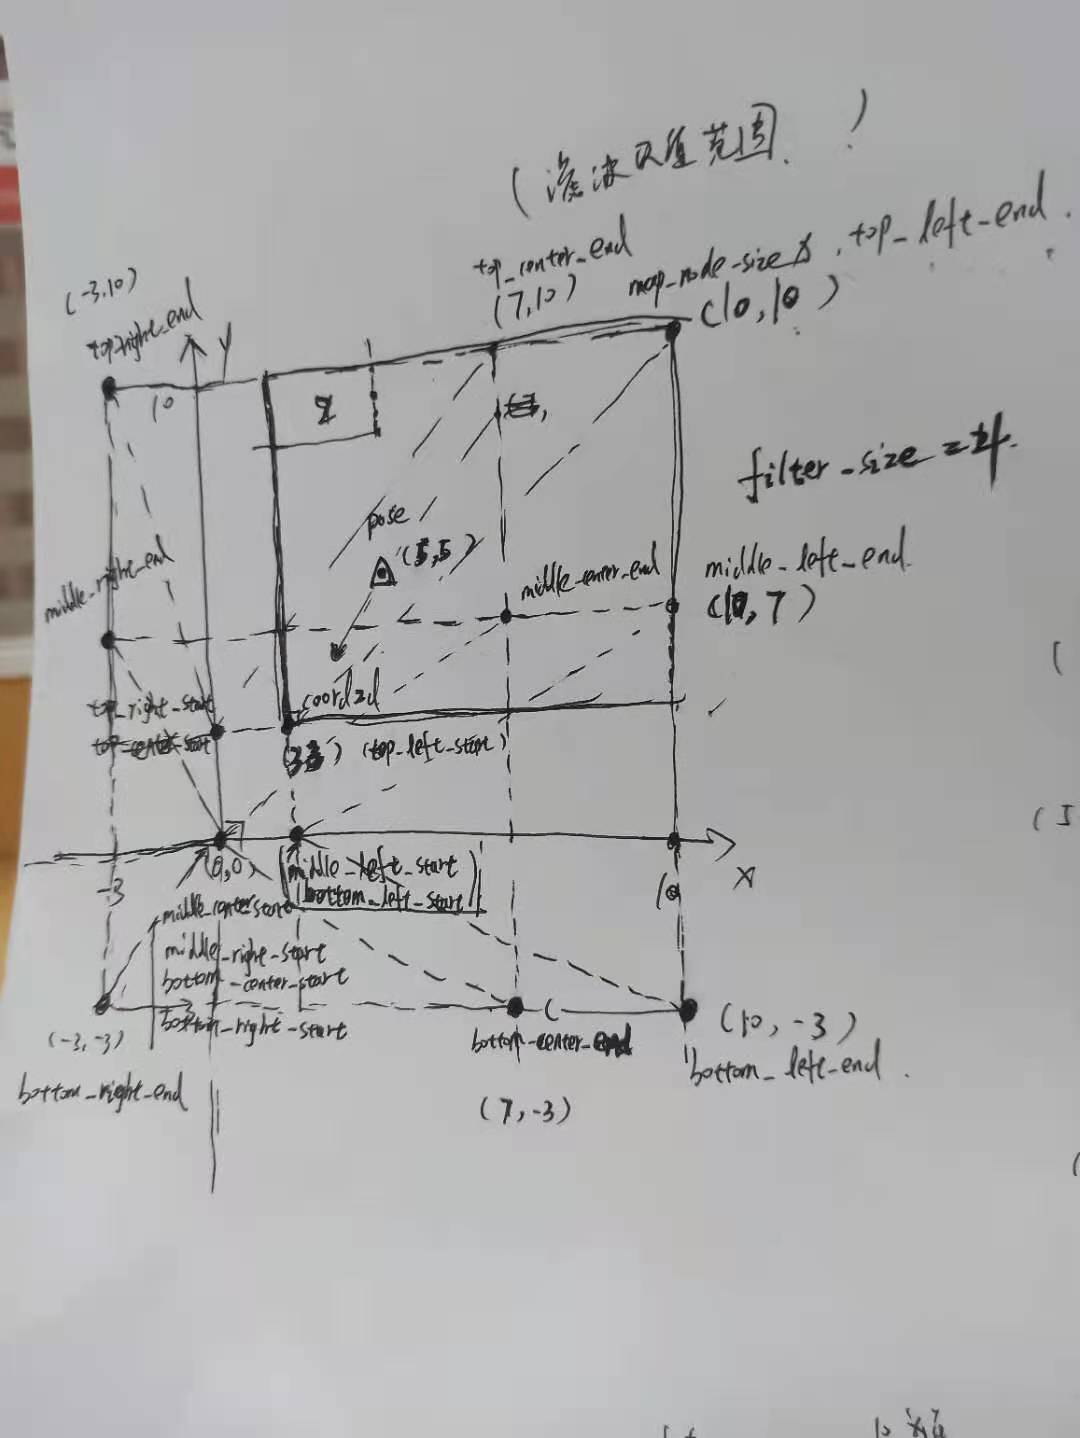 (滤波尺值范围、)
top_center_end
(7,10)
map_node_size
top_left_end
(10,10)
(-3,10)
top_right_end
Y
10
filter_size =
pose
(5,5)
middle_center_end
middle_left_end
(10,7)
middle_right_end
coord2d
top_right_start
(33) (top_left_start)
(0,0)
-3
middle_left_start
bottom_left_start
X
10
middle_center_start
middle_right_start
bottom_center_start
bottom_right_start
(-3,-3)
bottom_right_end
bottom_center_end
(7,-3)
(10,-3)
bottom_left_end